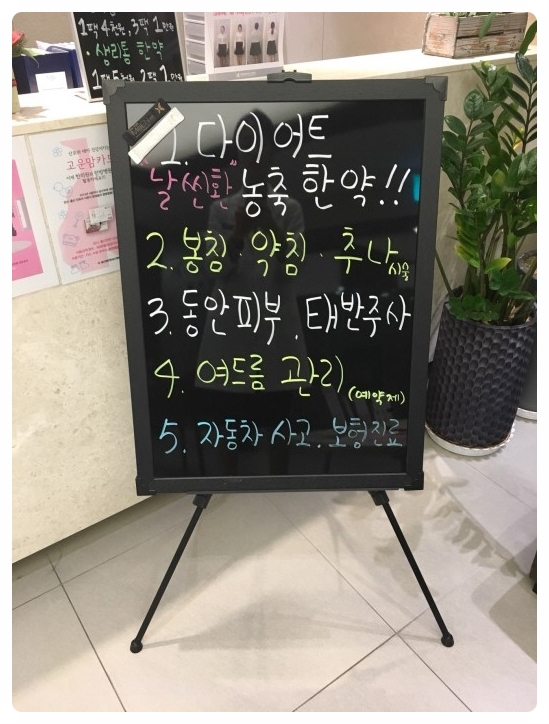 1팩 4천원, 3팩 1만원
·생리통 한약
고운맘카드
1. 다이어트
"날씬환" 농축 한약!!
2. 봉침·약침·추나시술
3. 동안피부. 태반주사
4. 여드름 관리 (예약제)
5. 자동차 사고. 보험진료